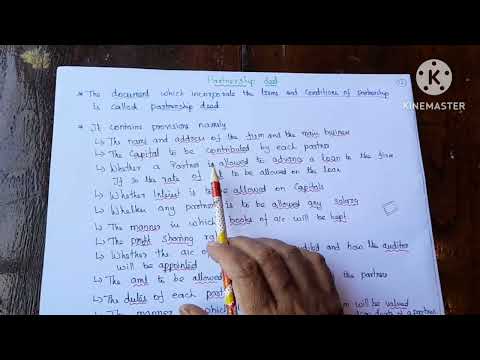 Partnership deed
* The document which incorporate the terms and conditions of partnership
is called partnership deed
* It contains provisions namely
↳ The name and address of the firm and the main business
↳ The Capital to be contributed by each partner
↳ Whether a Partner is allowed to advance a loan to the firm
If so the rate of to be allowed on the loan
↳ Whether Interest is to be allowed on Capitals
↳ Whether any partner is to be allowed any salary
↳ The manner in which books of a/c will be kept
↳ The profit sharing
↳ Whether the a/c and how the auditor
will be appointed
↳ The amt to be allowed the partner
↳ The duties of each
↳ The manner which will be valued
KINEMASTER